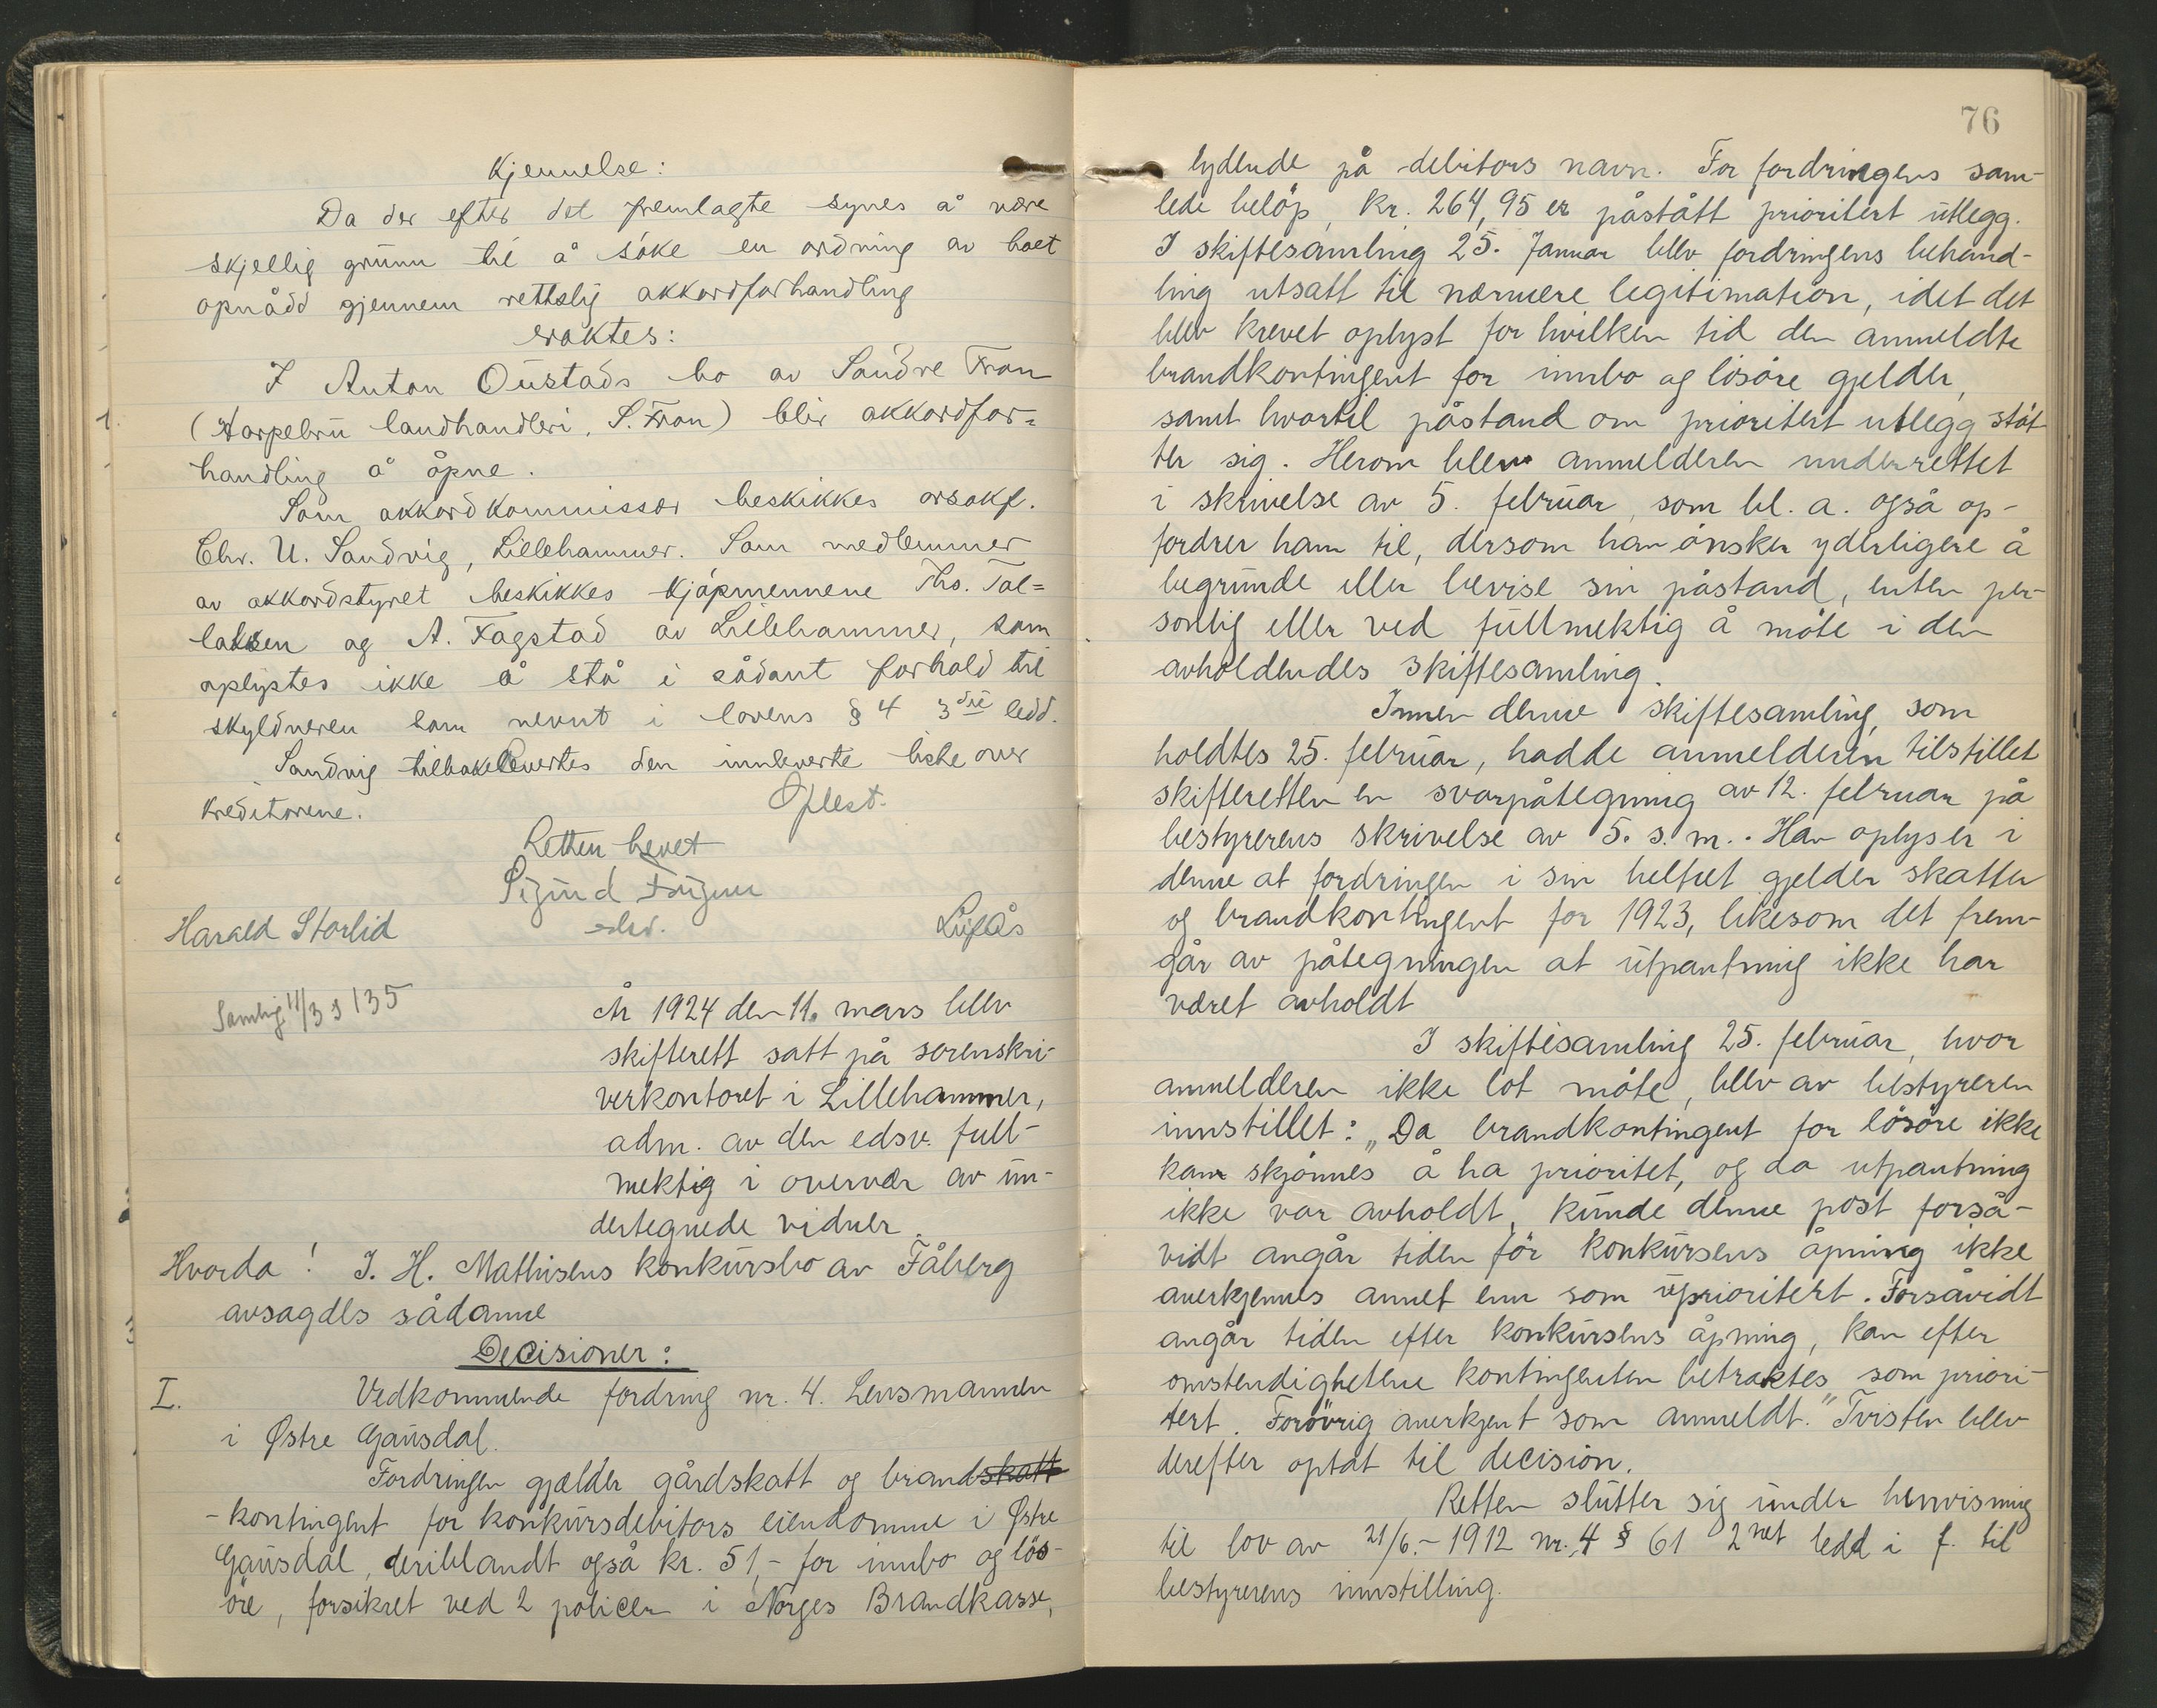 Kjennelse:
Da der efter det fremlagte synes å være
skjellig grunn til å søke en ordning av boet
opnådd gjennem rettslig akkordforhandling
vaktes:
I Anton Oustads bo av Søndre Fron
(Harpebru landhandleri, S. Fron) blir akkordfor=
handling å åpne.
Som akkordkommissær beskikkes orsakf.
Chr. U. Sandvig, Lillehammer. Som medlemmer
av akkordstyret beskikkes kjøpmennene Ths. Tol=
lakken og A. Fagstad av Lillehammer, som
oplystes ikke å stå i sådant forhold til
skyldneren som nevnt i lovens § 4 3dje ledd.
Sandvig tilbakeleverters den innleverte liste over
kreditorene.
Oplest.
Retten hevet
Sigurd
edsv.
Harald Storlid
Lufås
Samling 11/3 s 135
År 1924 den 11. mars blev
skifterett satt på sorenskri-
verkontoret i Lillehammer,
adm. av den edsv. full-
mektig i overvær av un-
dertegnede vidner.
Hvorda! I. H. Mathisens konkursbo av Fåberg
avsagdes sådanne
Decisioner:
I. Vedkommende fordring nr. 4. Lensmannen
i Østre Gausdal.
Fordringen gjælder gårdskatt og brandskatt
-kontingent for konkursdebitors eiendomme i Østre
Gausdal, deriblandt også kr. 51,- for innbo og løs-
øre, forsikret ved 2 policer i Norges Brandkasse,
76
lydende på debitors navn. For fordringens sam-
lede beløp, kr. 264,95 er påstått prioritert utlegg.
I skiftesamling 25. Januar blev fordringens behand-
ling utsatt til nærmere legitimation, idet det
blev krevet oplyst for hvilken tid den anmeldte
brandkontingent for innbo og løsøre gjelder,
samt hvortil påstand om prioritert utlegg støt-
ter sig. Herom blev anmelderen underrettet
i skrivelse av 5. februar, som bl. a. også op-
fordrer ham til, dersom han ønsker yderligere å
begrunde eller bevise sin påstand, enten per-
sonlig eller ved fullmektig å møte i den
avholdendes skiftesamling.
Innen denne skiftesamling, som
holdtes 25. februar, hadde anmelderen tilstillet
skifteretten en svarpåtegning av 12. februar på
bestyrerens skrivelse av 5. s. m.. Han oplyser i
denne at fordringen i sin helhet gjelder skatter
og brandkontingent for 1923, likesom det frem-
går av påtegningen at utpantning ikke har
været avholdt
I skiftesamling 25. februar, hvor
anmelderen ikke lot møte, blev av bestyreren
innstillet: „Da brandkontingent for løsøre ikke
kan skjønnes å ha prioritet, og da utpantning
ikke var avholdt, kunde denne post forså-
vidt angår tiden før konkursens åpning ikke
anerkjennes annet enn som uprioritert. Forsåvidt
angår tiden efter konkursens åpning, kan efter
omstendighetene kontingenten betraktes som priori-
tert. Forøvrig anerkjent som anmeldt." Tvisten blev
derefter optat til decision.
Retten slutter sig under henvisning
til lov av 21/6.- 1912 nr. 4 § 61 2net ledd i f. til
bestyrerens innstilling.